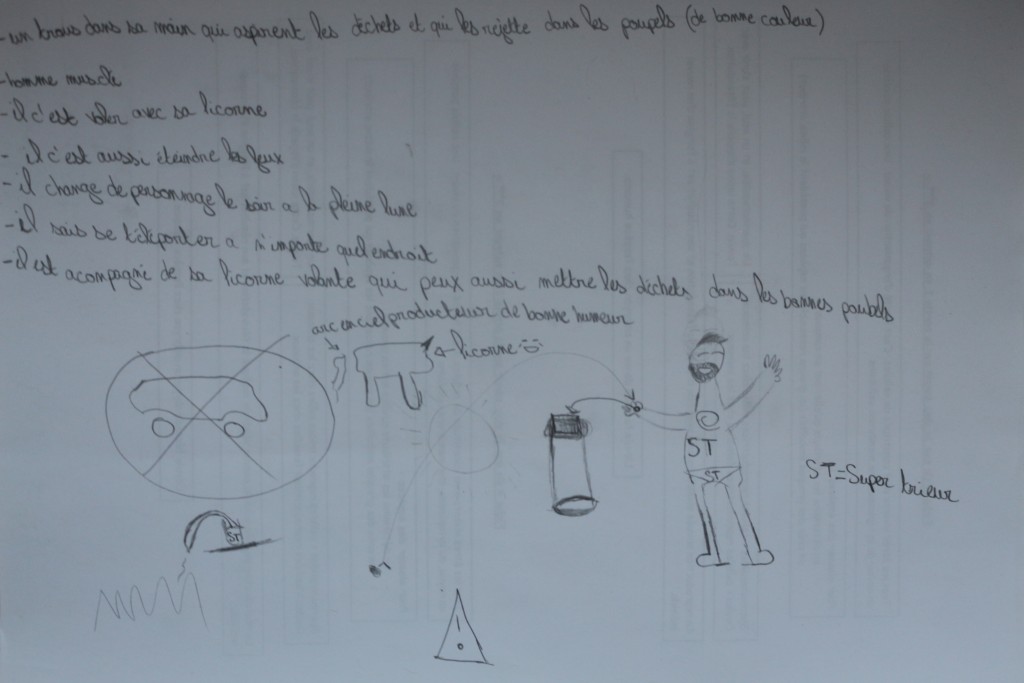 - un trous dans sa main qui aspirent les déchets et qui les rejette dans les poupels (de bonne couleur)
- homme musclé
- il c'est voler avec sa licorne
- il c'est aussi éteindre les feux
- il change de personnage le soir a la pleine lune
- il sais se téléporter a n'importe quel endroit
- il est acompagné de sa licorne volante qui peux aussi mettre les déchets dans les bonnes poubels
arc en ciel producteur de bonne humeur
licorne
ST
ST
ST = Super trieur
ST
!